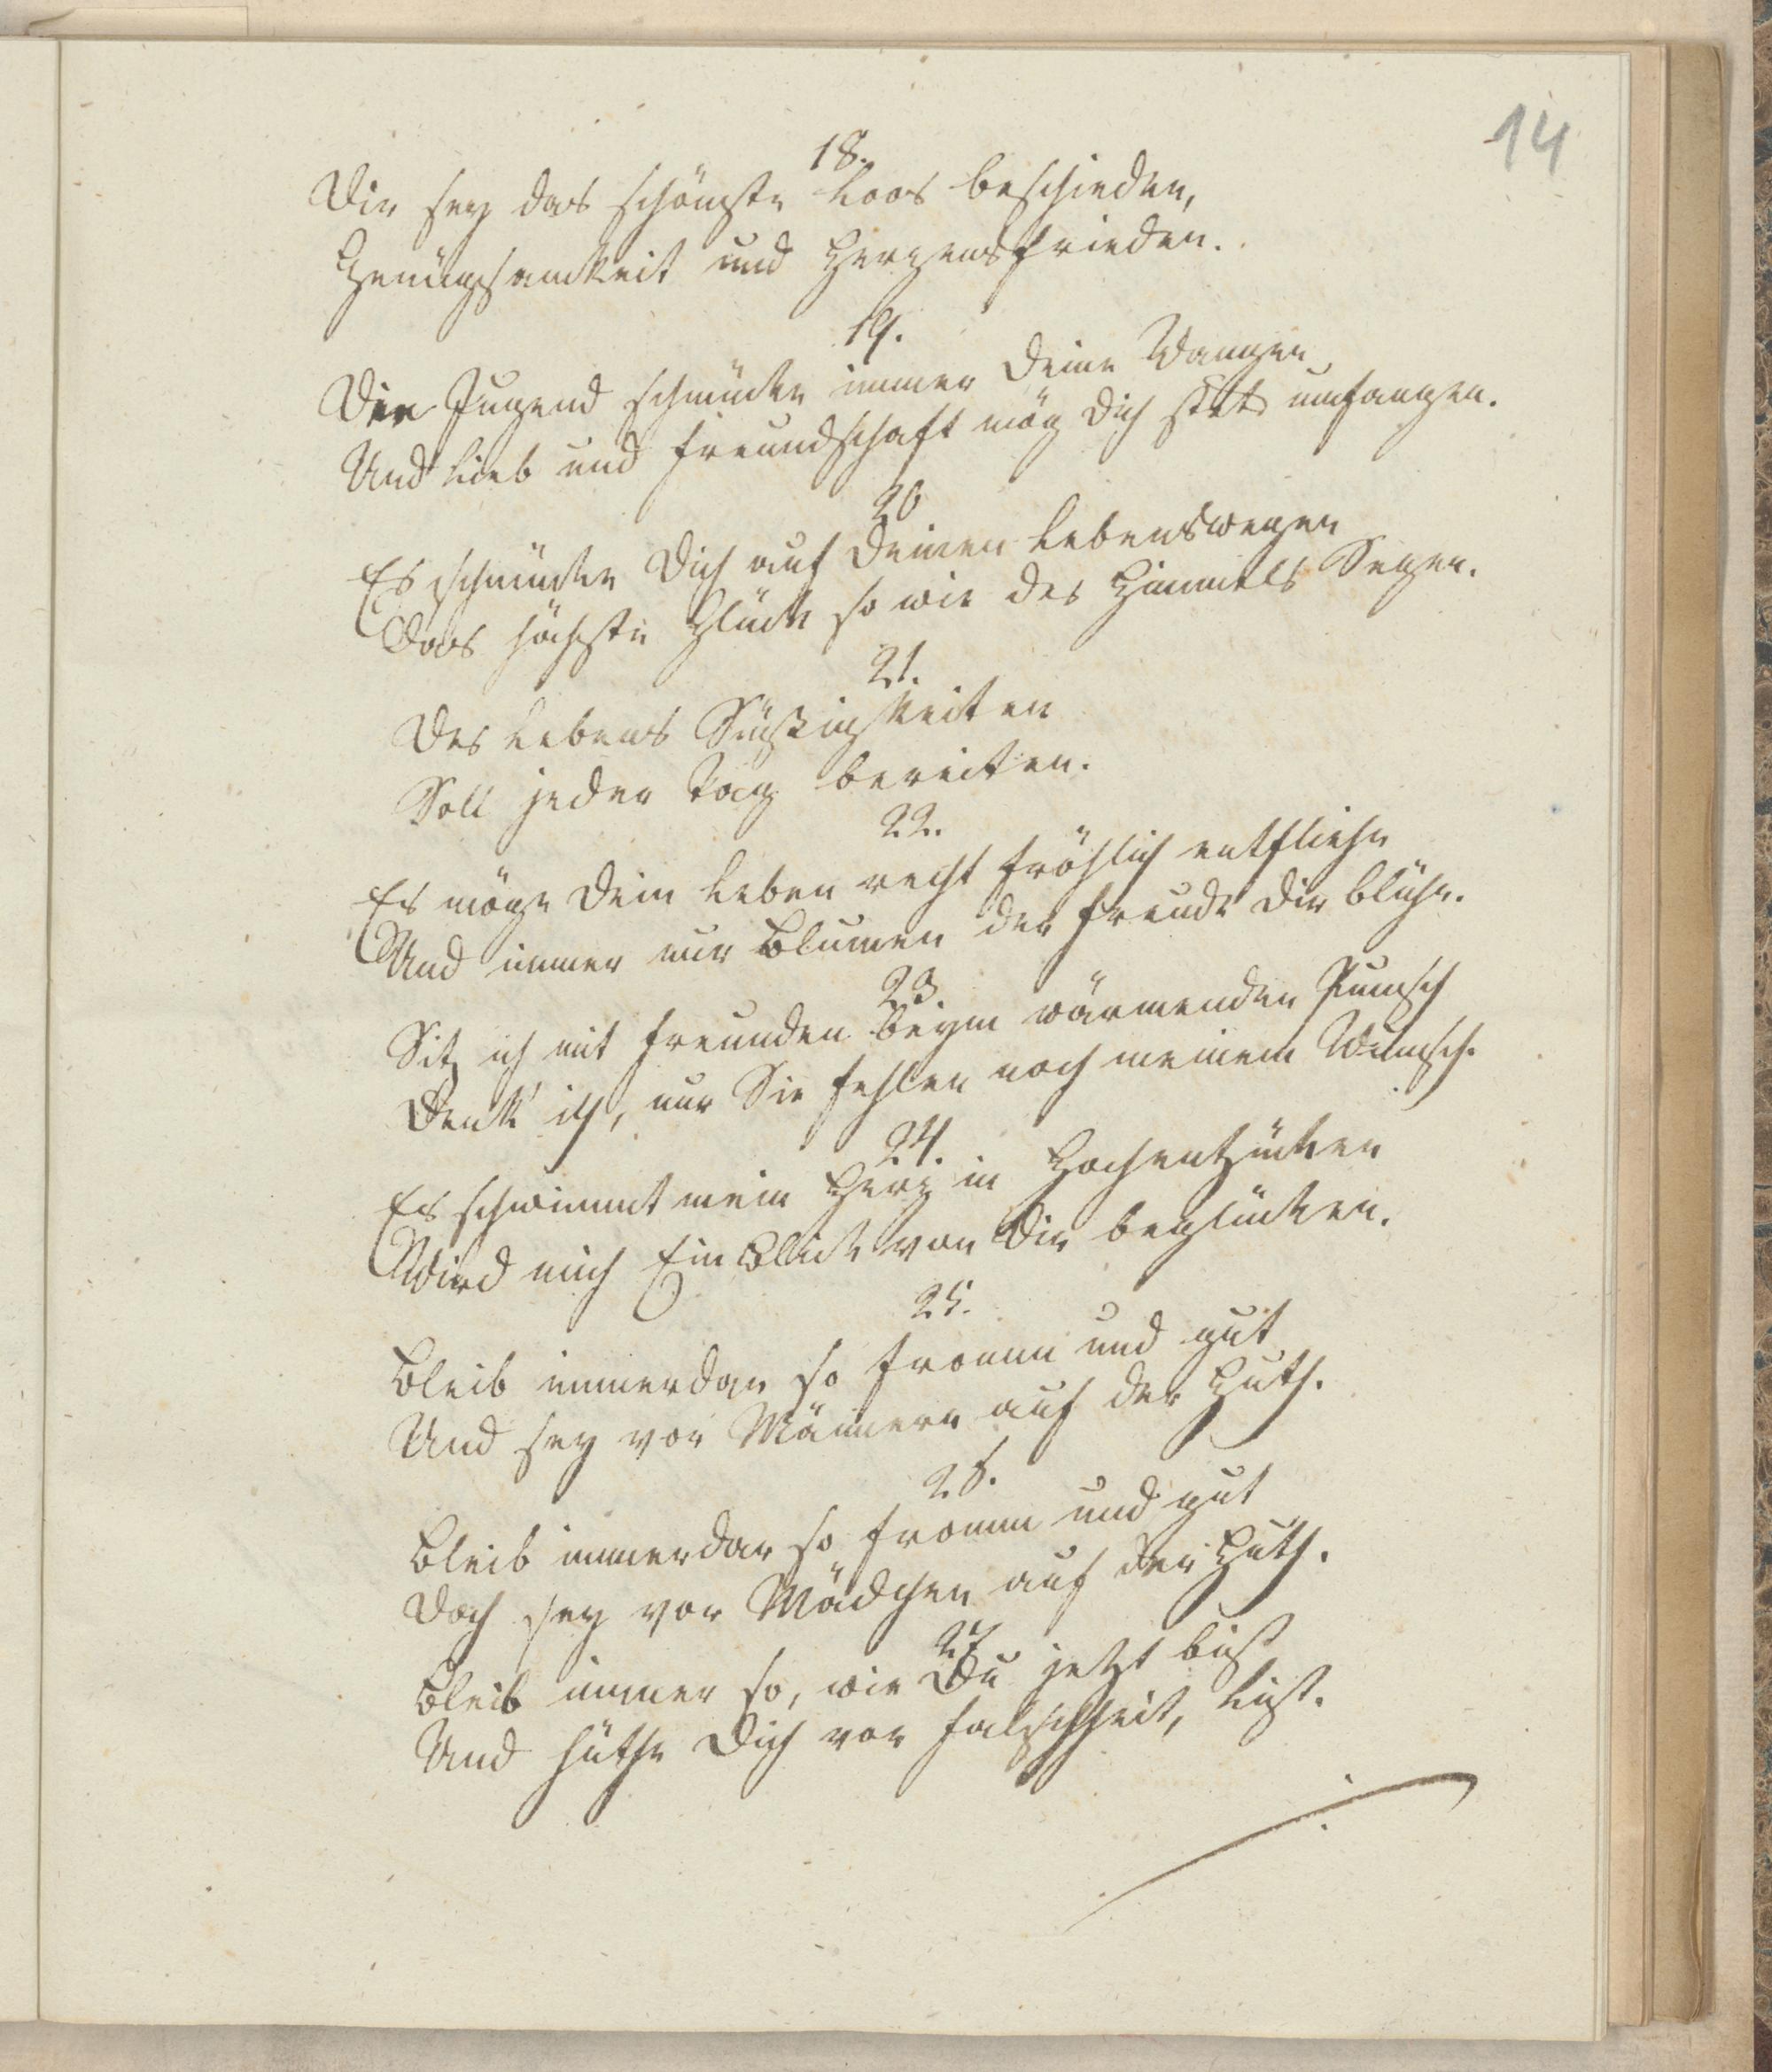 14
18.
Dir sey das schönste Loos beschieden,
Genügsamkeit und Herzensfrieden.
19.
Die Jugend schmücke immer Deine Wangen
Und Lieb und Freundschaft mög Dich stets umfangen.
20
Es schmücke Dich auf Deinen Lebenswegen
Das höchste Glück so wie des Himmels Segen.
21.
Des Lebens Süßigkeiten
Soll jeder Tag bereiten.
22.
Es möge Dein Leben recht fröhlich entfliehn
Und immer nur Blumen der Freude Dir blühn.
23.
Sitz ich mit Freunden beym wärmenden Punsch
Denk' ich, nur Sie fehlen noch meinem Wunsch.
24.
Es schwimmt mein Herz in Hochentzücken
Wird mich Ein Blick von Dir beglücken.
25.
Bleib immerdar so fromm und gut
Und sey vor Männern auf der Huth.
26.
Bleib immerdar so fromm und gut
Doch sey vor Mädchen auf der Huth.
27
Bleib immer so, wie Du jetzt bist
Und hüthe Dich vor Falschheit, List.